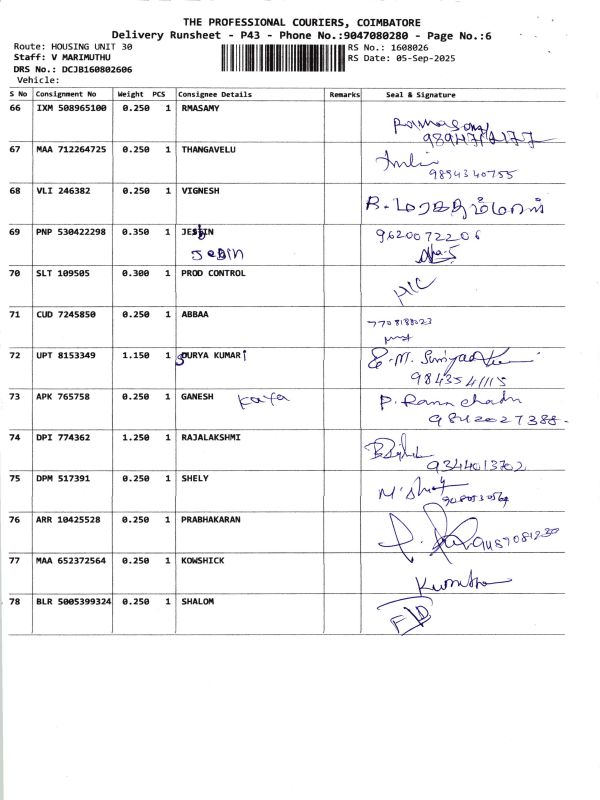 THE PROFESSIONAL COURIERS, COIMBATORE
Delivery Runsheet - P43 - Phone No.:9047080280 - Page No.:6
Route: HOUSING UNIT 30 RS No.: 1608026
Staff: V MARIMUTHU RS Date: 05-Sep-2025
DRS No.: DCJB160802606
Vehicle:
S No Consignment No Weight PCS Consignee Details Remarks Seal & Signature
66 IXM 508965100 0.250 1 RMASAMY
67 MAA 712264725 0.250 1 THANGAVELU
9894340755
68 VLI 246382 0.250 1 VIGNESH
69 PNP 530422298 0.350 1 JEBIN 9620072206
JeBIN
70 SLT 109505 0.300 1 PROD CONTROL
H/C
71 CUD 7245850 0.250 1 ABBAA
7708188023
72 UPT 8153349 1.150 1 SURYA KUMARI
9843541115
73 APK 765758 0.250 1 GANESH Kaya P. Ramachadn
9842027388
74 DPI 774362 1.250 1 RAJALAKSHMI
9344013702
75 DPM 517391 0.250 1 SHELY
76 ARR 10425528 0.250 1 PRABHAKARAN
77 MAA 652372564 0.250 1 KOWSHICK
78 BLR 5005399324 0.250 1 SHALOM
F/D